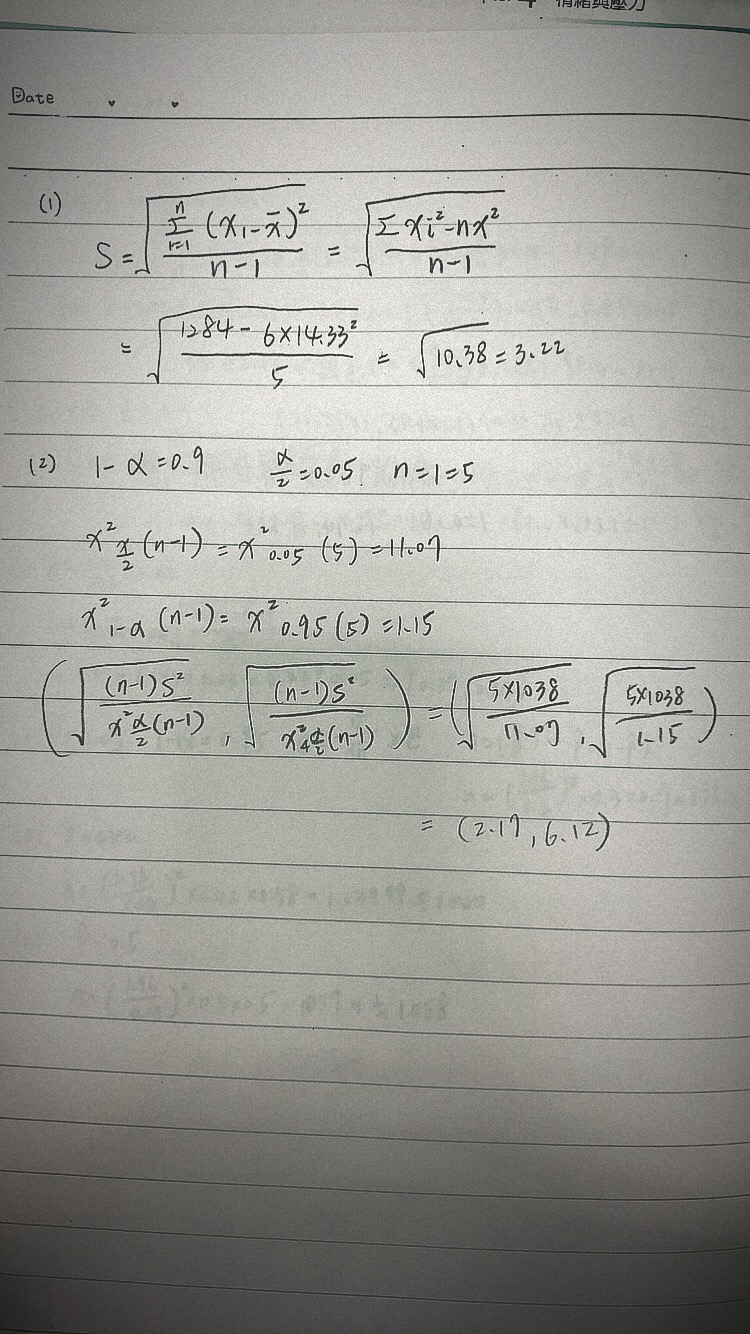 情緒與壓力
Date
(1)
S = √(Σ_{i=1}^{n} (x₁ - x̄)² / (n-1)) = √((Σxi² - nx²) / (n-1))
= √((1284 - 6×14.33²) / 5) = √10.38 = 3.22
(2) 1-α=0.9 α/2=0.05. n=1=5
x²_{α/2} (n-1) = x²_{0.05} (5) = 11.07
x²_{1-α} (n-1) = x²_{0.95} (5) = 1.15
(√((n-1)S² / x²_{α/2}(n-1)), √((n-1)S² / x²_{α/2}(n-1))) = (√(5×1038 / 11.07), √(5×1038 / 1.15))
= (2.17, 6.12)